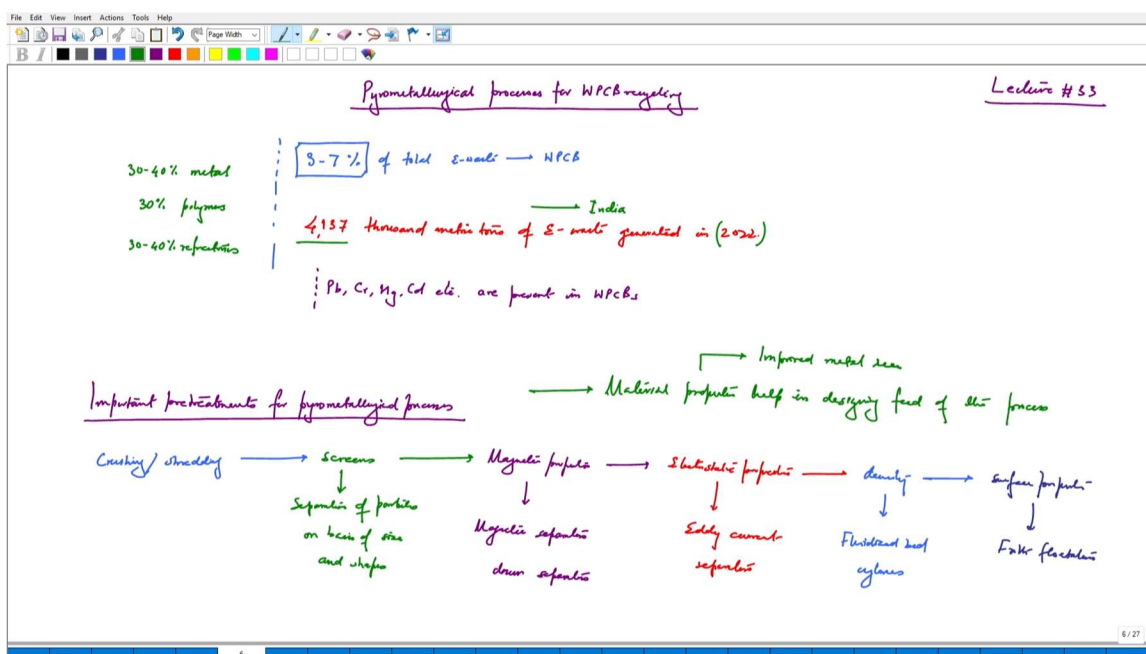 File Edit View Insert Actions Tools Help
Page Width
B I
Pyrometallurgical processes for WPCB recycling
Lecture #33
30-40% metal
30% polymers
30-40% refractories
3-7% of total E-waste → WPCB
→ India
4,137 thousand metric tons of E-waste generated in (2022)
Pb, Cr, Hg, Cd etc. are present in WPCBs
→ Improved metal
Important pretreatments for pyrometallurgical processes
→ Material properties help in designing feed of the process
Crushing/shredding → Screens → Magnetic properties → Electrostatic properties → density → Surface properties
Separation of particles
on basis of size
and shapes
Magnetic separation
drum separation
Eddy current
separation
Fluidized bed
cyclones
Froth floatation
6 / 27
6